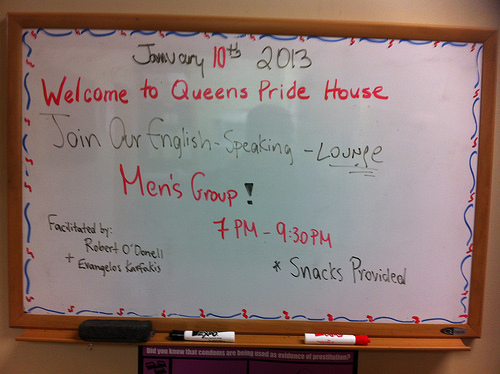 January 10th 2013
Welcome to Queens Pride House
Join Our English-Speaking - LOUNGE
Men's Group!
7 PM - 9:30 PM
Facilitated by:
Robert O'Donell
+ Evangelos Karfakis
* Snacks Provided
EXPO
Did you know that condoms are being used as evidence of prostitution?